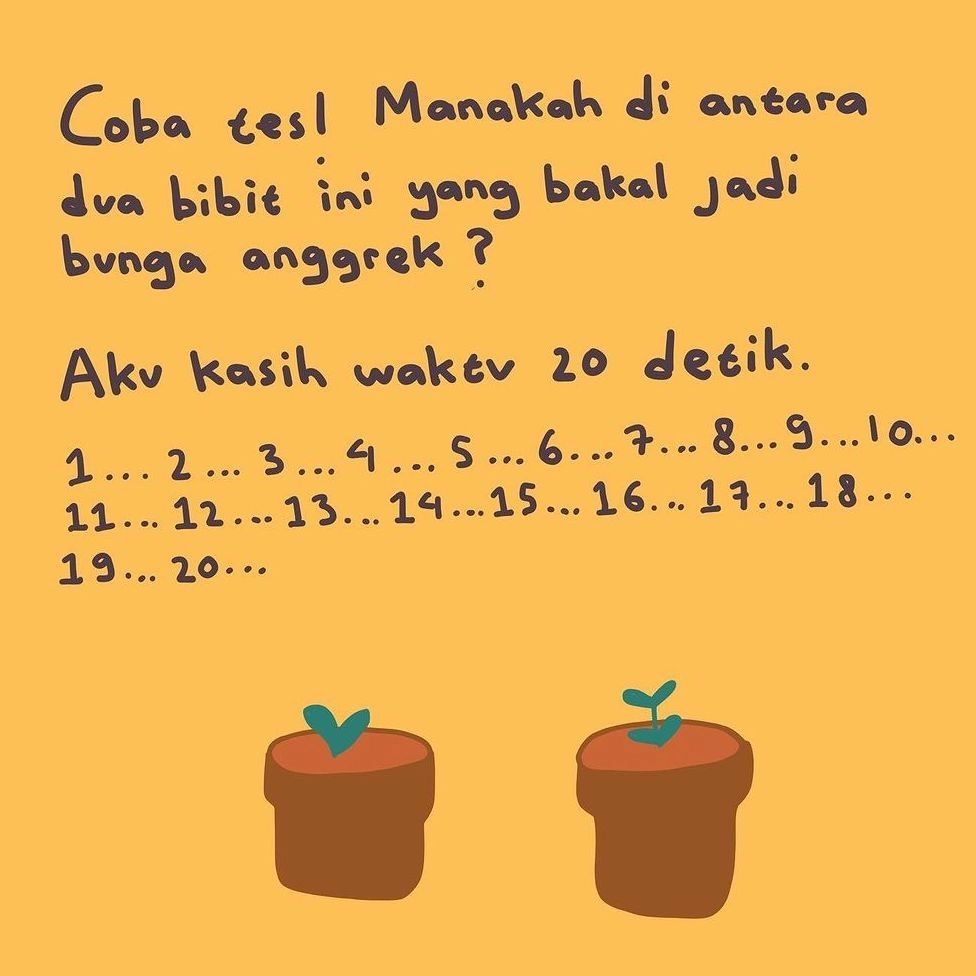 Coba tes! Manakah di antara
dua bibit ini yang bakal jadi
bunga anggrek?
Aku kasih waktu 20 detik.
1... 2... 3... 4... 5... 6... 7... 8... 9... 10...
11... 12... 13... 14... 15... 16... 17... 18...
19... 20...